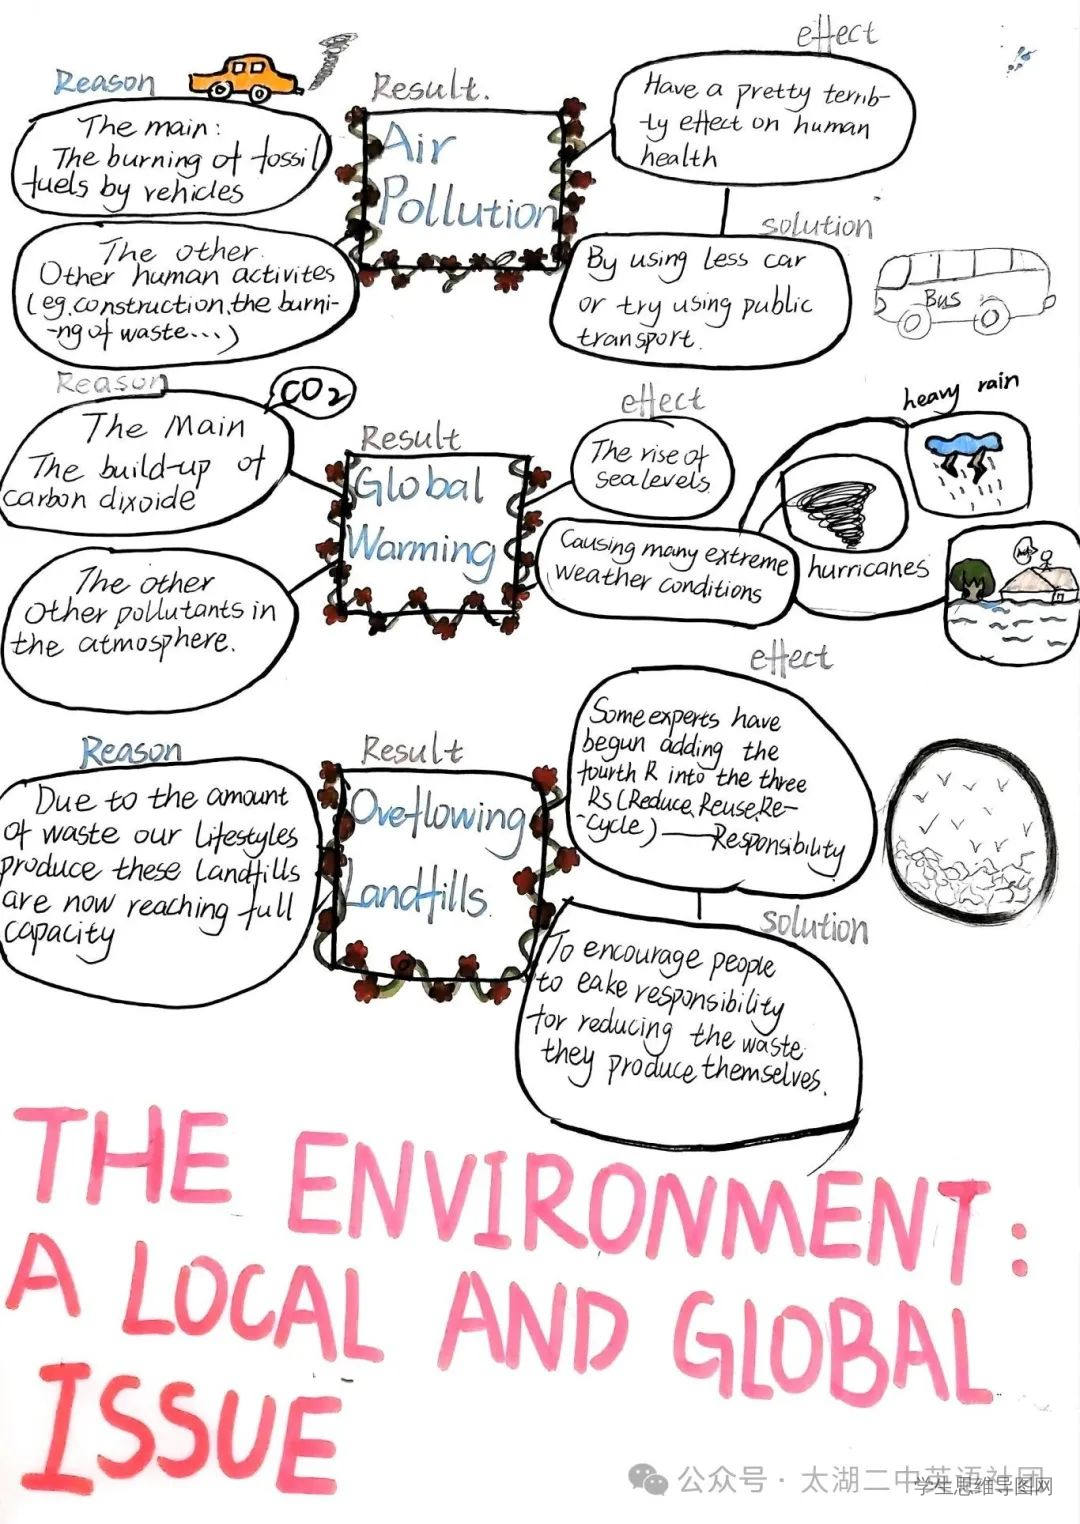 effect
Reason
Result.
The main:
The burning of fossil
fuels by vehicles
Air
Pollution
Have a pretty terrib-
-ly effect on human
health
The other.
Other human activites
(eg.construction,the burni-
-ng of waste...)
solution
By using less car
or try using public
transport.
Bus
Reason
CO2
The Main
The build-up of
carbon dixoide
The other
Other pollutants in
the atmosphere.
Result
Global
Warming
effect
The rise of
sea levels.
Causing many extreme
weather conditions
heavy rain
hurricanes
Reason
Due to the amount
of waste our lifestyles
produce these landfills
are now reaching full
capacity
Result
Oveflowing
Landfills.
effect
Some experts have
begun adding the
fourth R into the three
Rs (Reduce,Reuse,Re-
-cycle)——Responsibility
solution
To encourage people
to eake responsibility
for reducing the waste
they produce themselves.
THE ENVIRONMENT:
A LOCAL AND GLOBAL
ISSUE
公众号·太湖二中英语社团
学生思维导图网